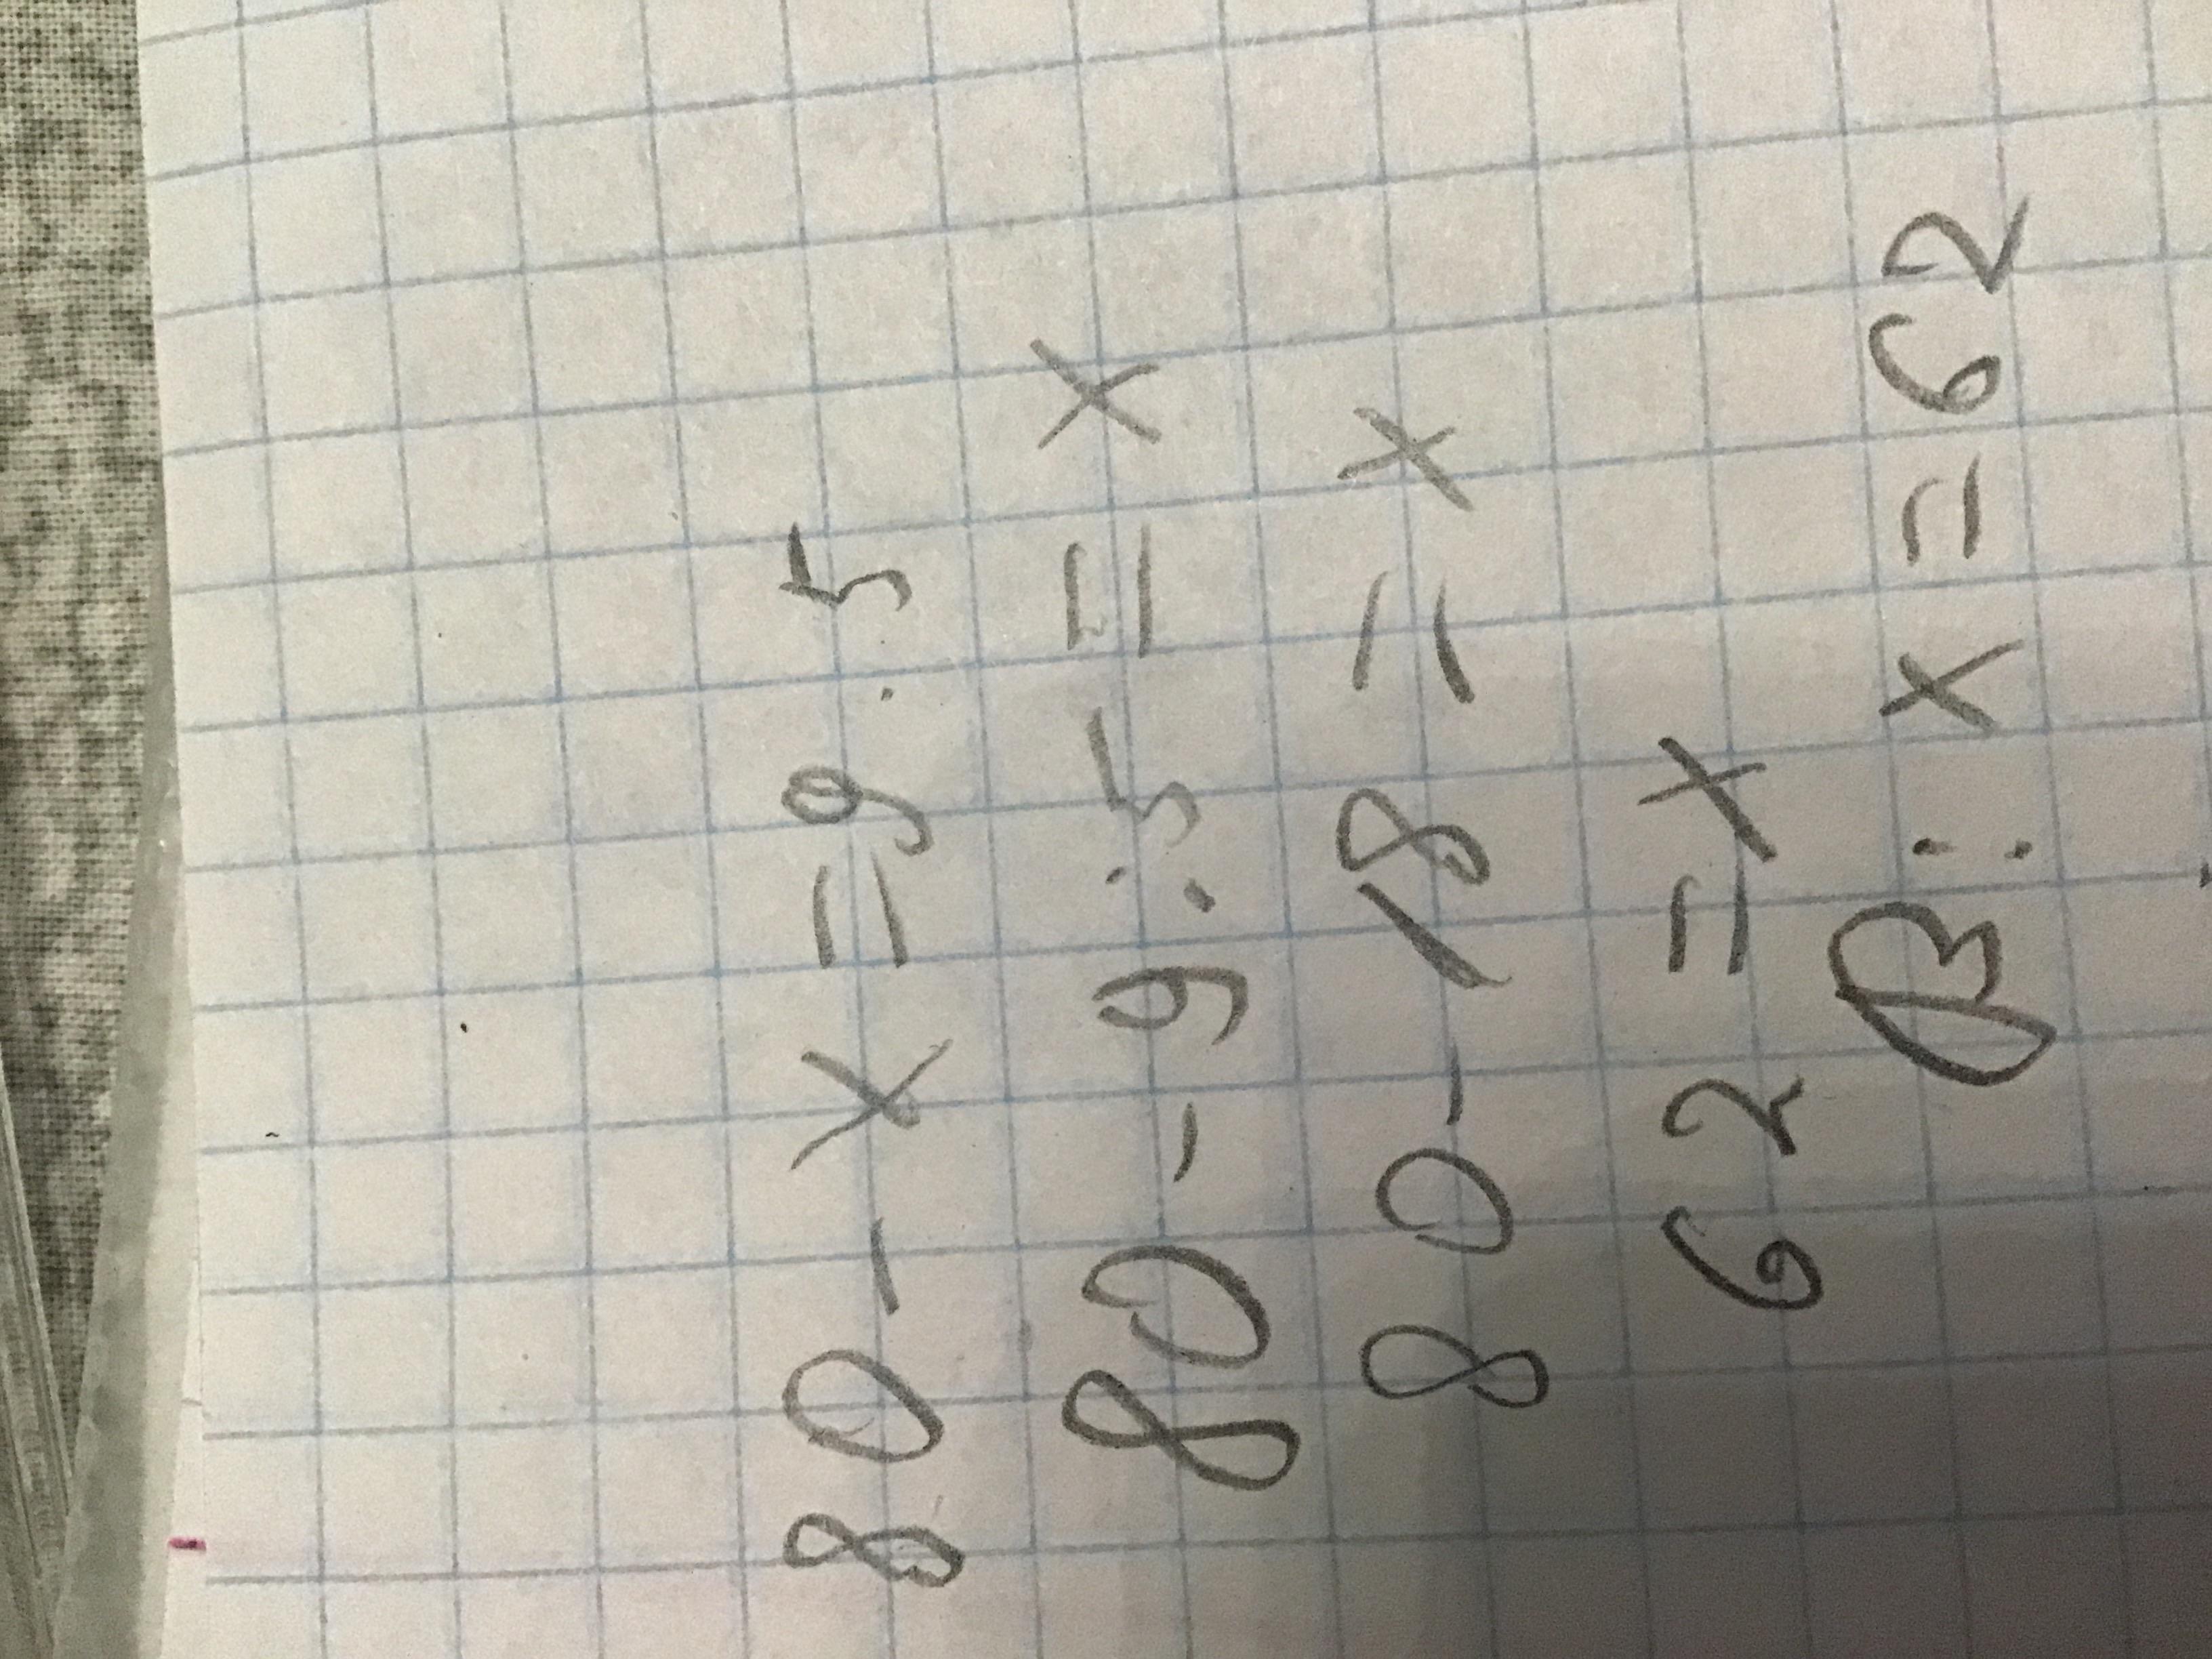 80 - x = 9 . 5
80 - 9 : 5 = x
80 - 18 = x
62 = x
В: x = 62